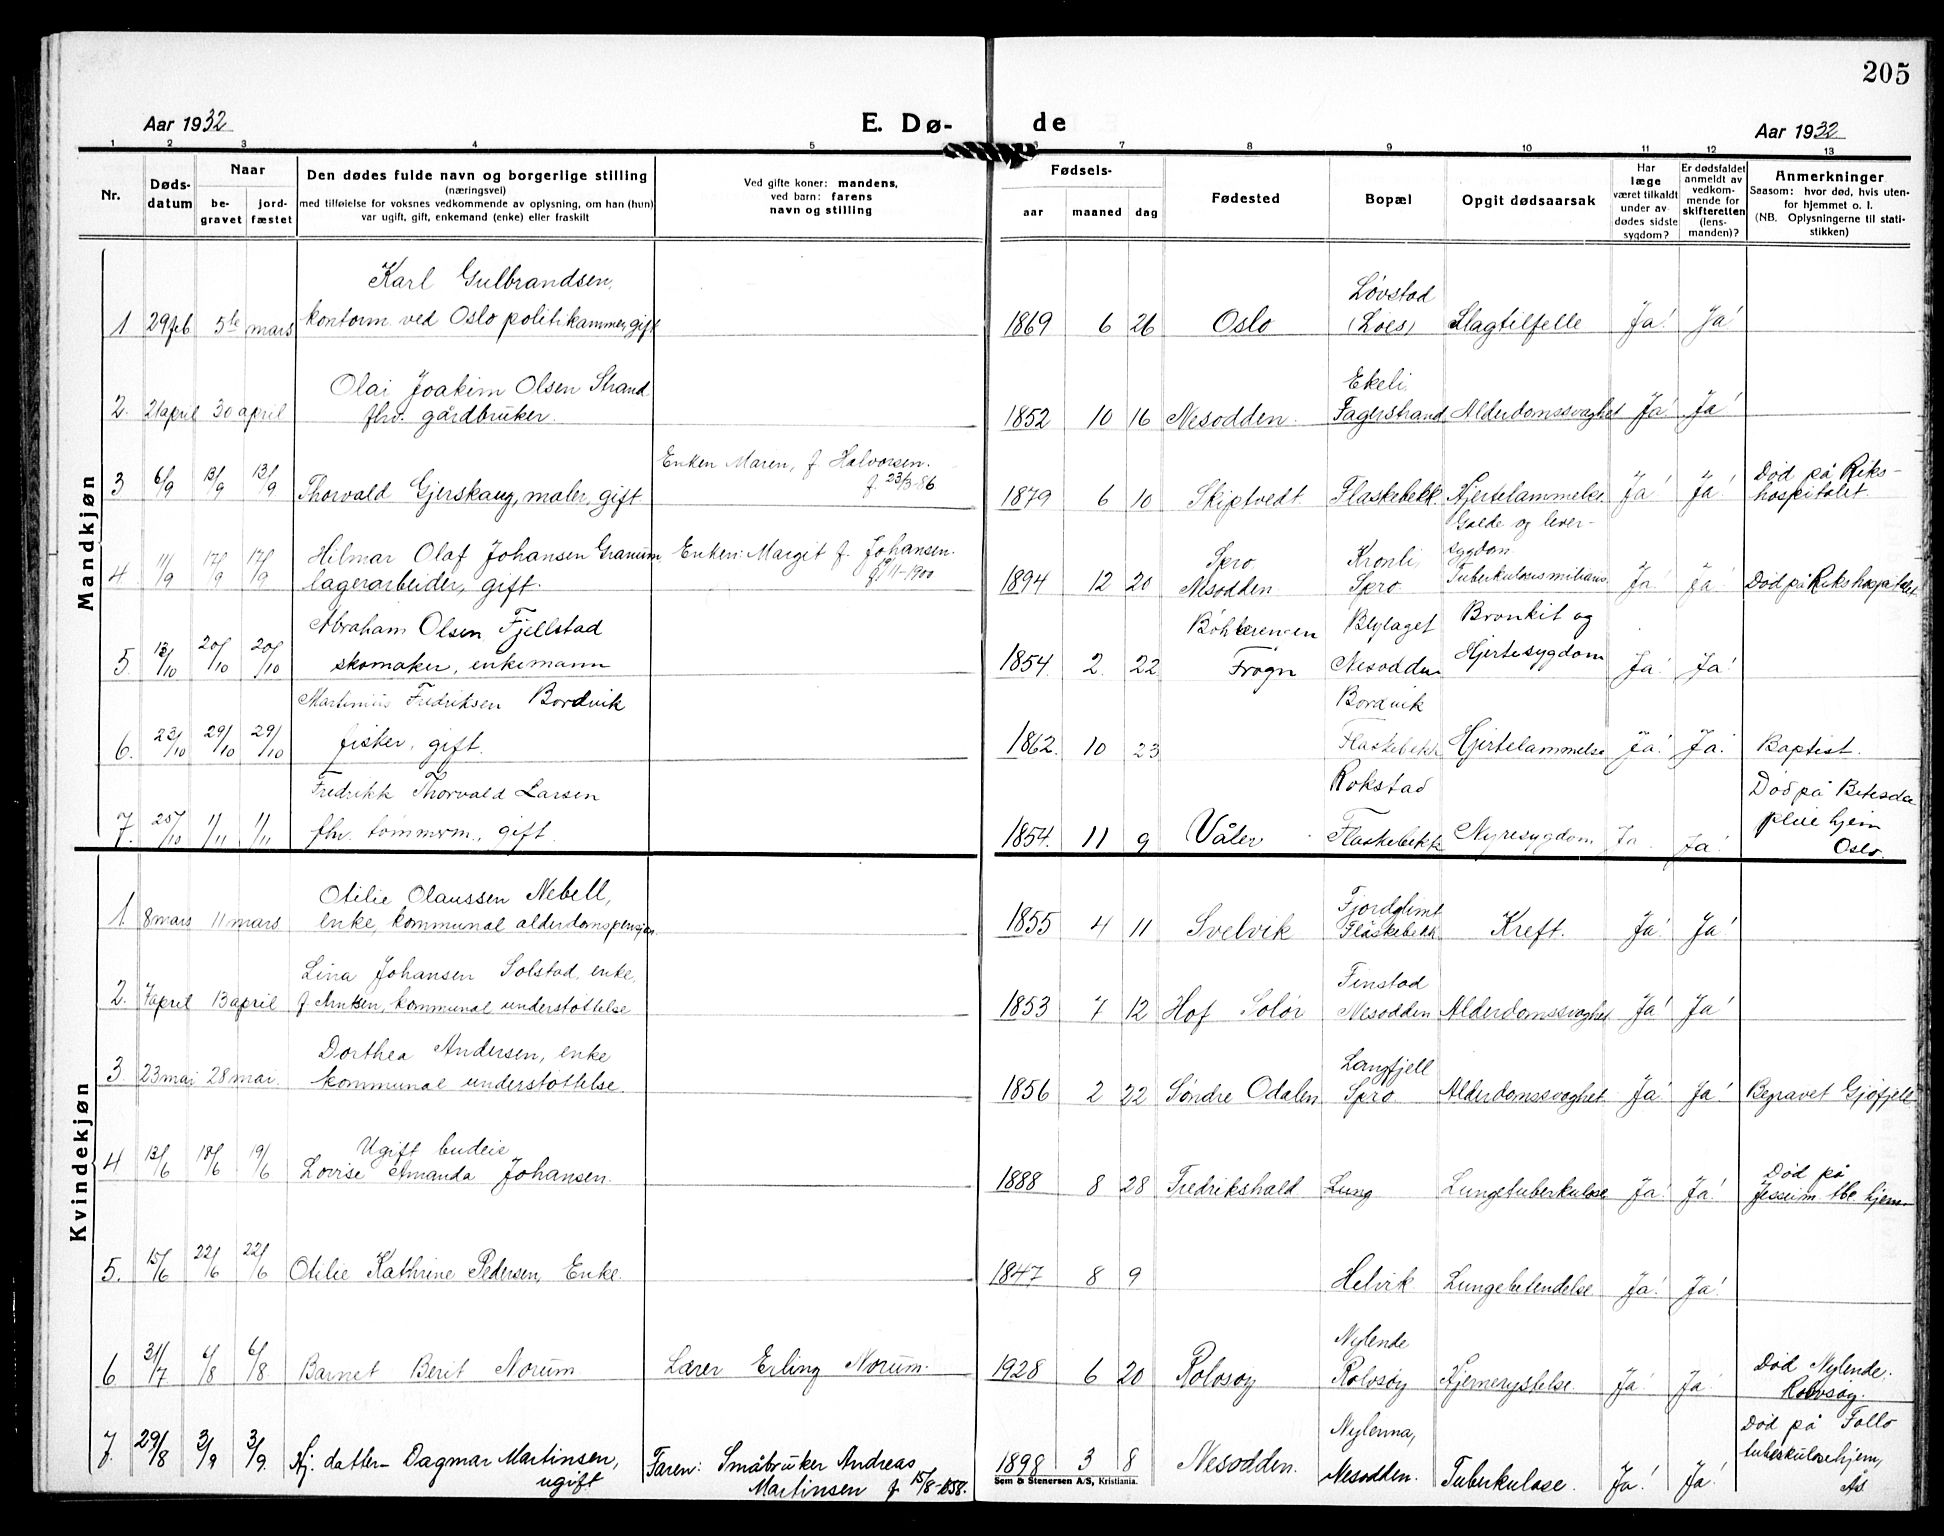 205
Aar 1932
E. Dø- de
Aar 1932
1 2 3 4 5 6 7 8 9 10 11 12 13
Nr.
Døds-
datum
Naar
be-
gravet
jord-
fæstet
Den dødes fulde navn og borgerlige stilling
(næringsvei)
med tilføielse for voksnes vedkommende av oplysning, om han (hun)
var ugift, gift, enkemand (enke) eller fraskilt
Ved gifte koner: mandens,
ved barn: farens
navn og stilling
Fødsels-
aar maaned dag
Fødested
Bopæl
Opgit dødsaarsak
Har
læge
været tilkaldt
under av-
dødes sidste
sygdom?
Er dødsfaldet
anmeldt av
vedkom-
mende for
skifteretten
(lens-
manden)?
Anmerkninger
Saasom: hvor død, hvis uten-
for hjemmet o. l.
(NB. Oplysningerne til stati-
stikken)
Mandkjøn
Karl Gulbrandsen,
1 29 feb 5te mars kontorm ved Oslo politikammer, gift
Løvstad
1869 6 26 Oslo (Loes) Slagtilfelle Ja! Ja!
Olai Joakim Olsen Strand
2. 21 april 30 april fhv. gårdbruker.
Ekeli,
1852 10 16 Nesodden. Fagerstrand Alderdomssvaghet Ja! Ja!
Enken Maren, f. Halvorsen.
3 6/9 13/9 13/9 Thorvald Gjerskaug, maler, gift f. 23/3-86
Død på Riks-
1879 6 10 Skiptvedt Flaskebekk. Hjertelammelse Ja! Ja! hospitalet.
Galde og lever-
sygdom
Hilmar Olaf Johansen Granum Enken: Margit f. Johansen.
4 11/9 17/9 17/9 lagerarbeider, gift.
Spro, Kronli,
1894 12 20 Nesodden Spro Ja! Ja! Død på Rikshospitalet
Abraham Olsen Fjellstad
5 13/10 20/10 20/10 skomaker, enkemann
Blylaget Bronkit og
1854 2. 22 Frogn Nesodden Hjertesygdom Ja! Ja!
Martinius Fredriksen Bordvik
6. 23/10 29/10 29/10 fisker, gift.
Bordvik
1862. 10 23 Flaskebekk Hjertelammelse Ja! Ja! Baptist.
Fredrikk Thorvald Larsen
7. 25/10 1/11 1/11 fhv. tømmerm., gift.
Rokstad Død på Betesda
1854. 11 9 Våler Flaskebekk Nyresygdom Ja. Ja! pleiehjem
Oslo.
Kvindekjøn
Otilie Olaussen Nebell,
1. 8 mars 11 mars enke, kommunal alderdomspensjon
Fjordglimt
1855 4 11 Svelvik Flaskebekk Kreft. Ja! Ja!
Lina Johansen Solstad, enke,
2. 7 april 13 april f. Arntsen, kommunal understøttelse
Finstad
1853 7 12 Hof Solør Nesodden Alderdomssvaghet Ja! Ja!
Dorthea Andersen, enke
3. 23 mai 28 mai. kommunal understøttelse.
Langfjell
1856 2 22 Søndre Odalen Spro Alderdomssvaghet Ja! Ja! Begravet Gjøfjell
Ugift budeie
4 13/6 18/6 19/6 Lovise Amanda Johansen.
Død på
1888 8 28 Fredrikshald Lung Lungetuberkulose Ja! Ja! Jesseim tbc. hjem.
5. 15/6 22/6 22/6 Otilie Kathrine Pedersen, Enke.
1847 8 9 Helvik Lungebetendelse Ja! Ja!
6 31/7 6/8 6/8 Barnet Berit Norum Lærer Erling Norum.
Nylende Død Nylende,
1928 6 20 Rolvsøy Rolvsøy Hjernerystelse. Ja! Ja! Rolvsøy.
7. 29/8 3/9 3/9. Hj. datter Dagmar Martinsen, Faren: Småbruker Andreas
ugift Martinsen f 15/8-1858.
Nylenna, Død på Follo
1898 3 8 Nesodden. Nesodden. Tuberkulose. Ja! Ja! tuberkulosehjem,
Ås
Sem & Stenersen A/S, Kristiania.